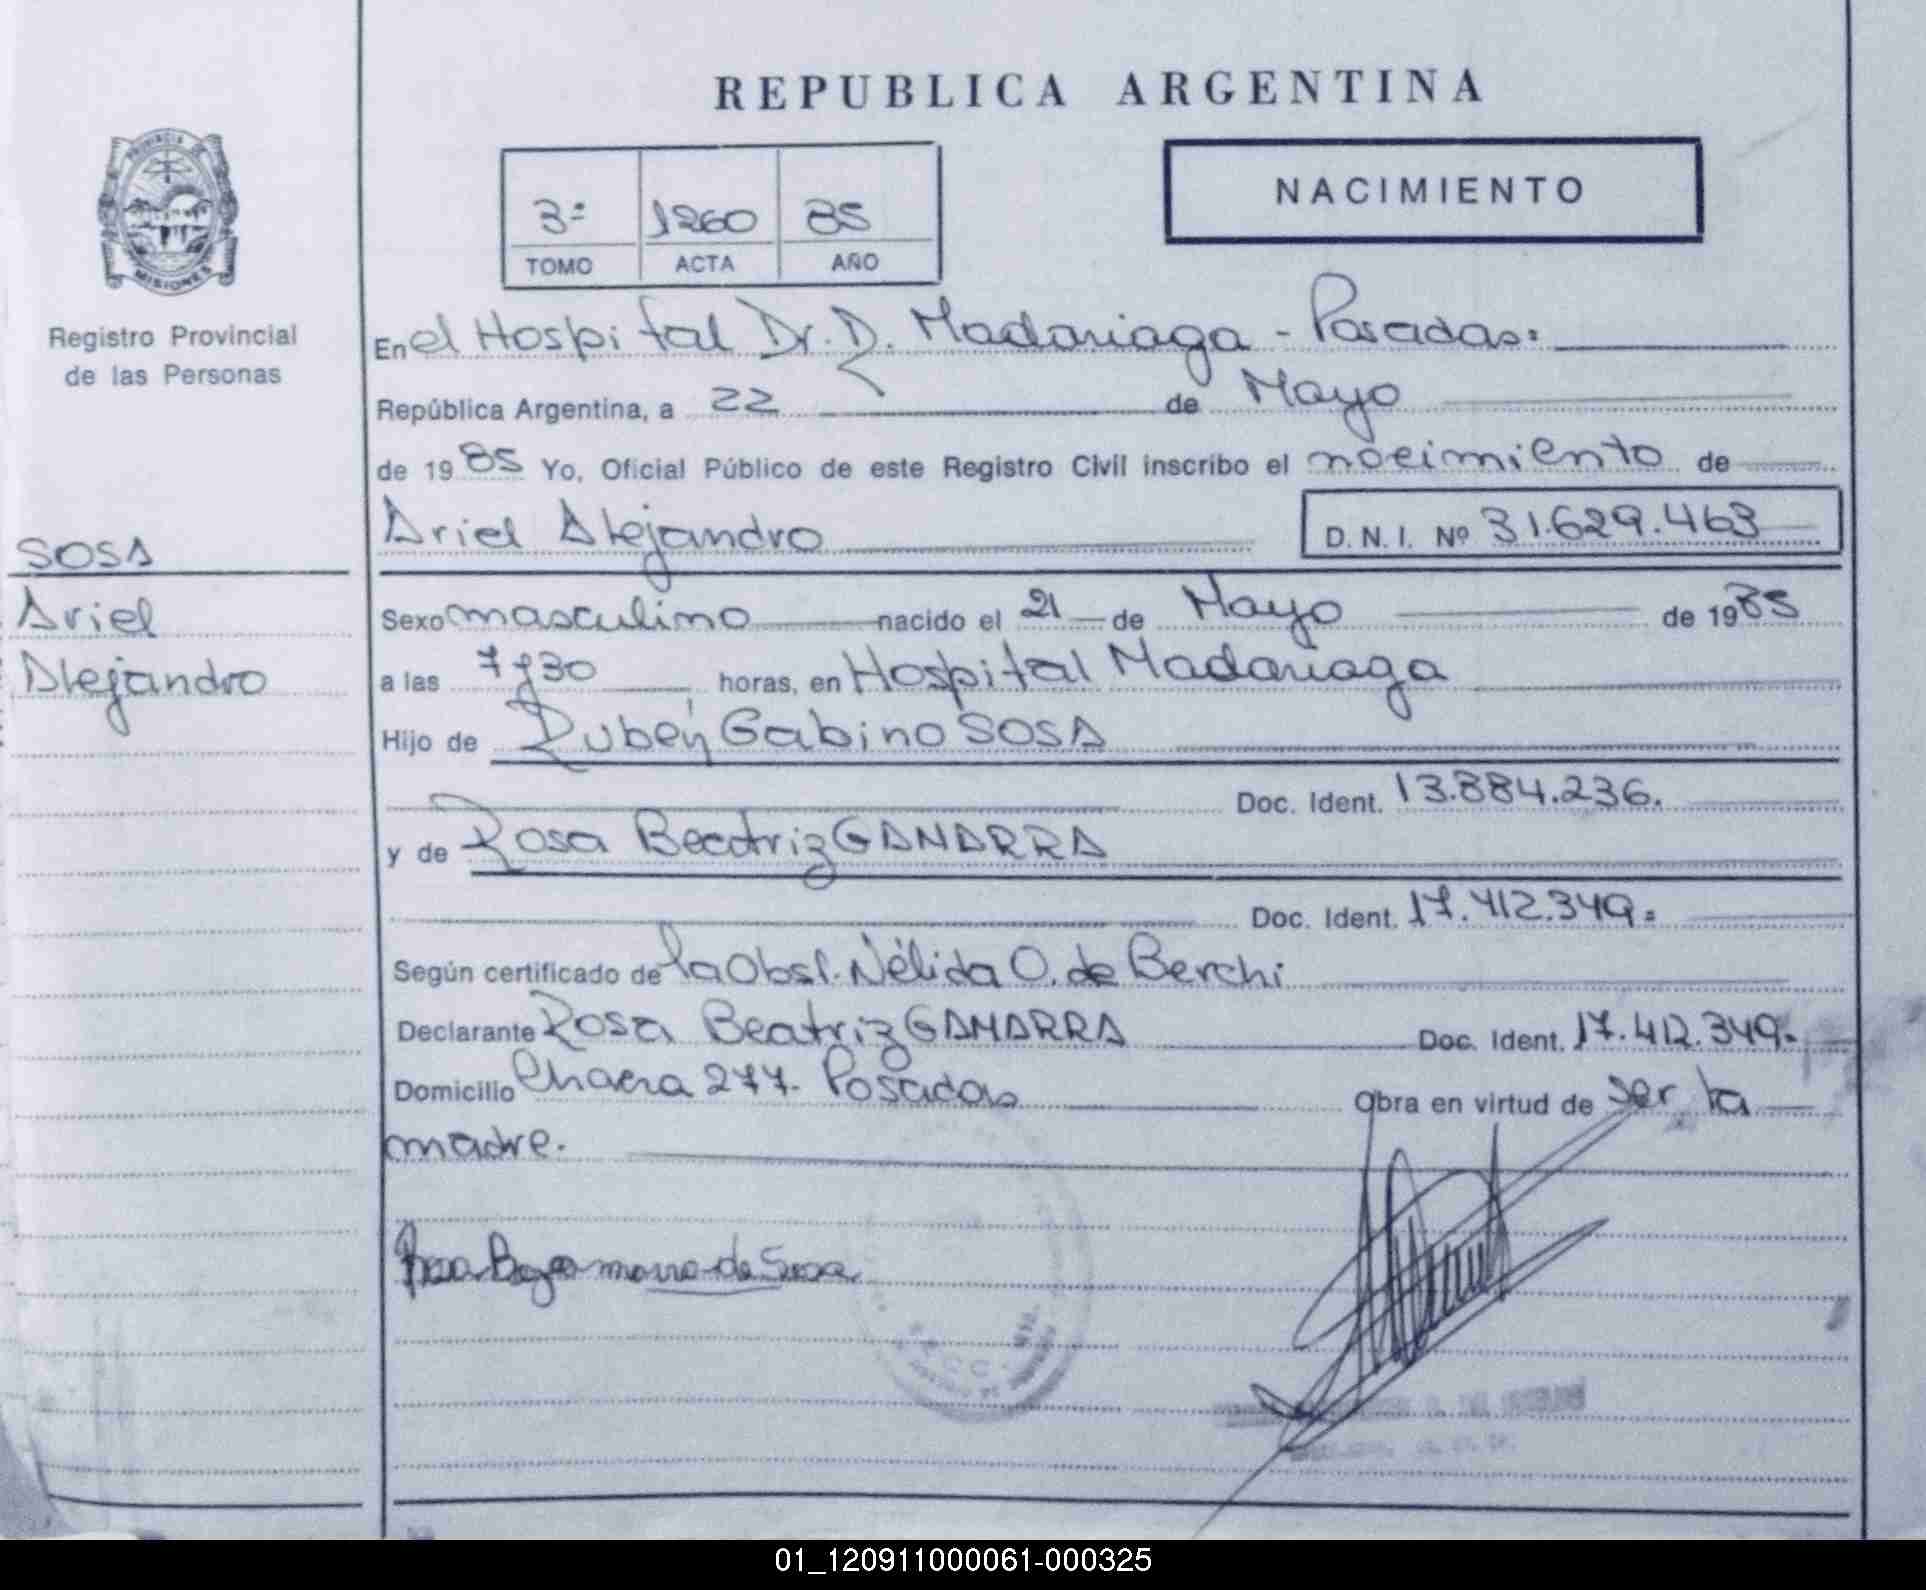 REPUBLICA ARGENTINA
PROVINCIA DE
MISIONES
Registro Provincial
de las Personas
3ª 1260 85
TOMO ACTA AÑO
NACIMIENTO
En el Hospital Dr. R. Madariaga - Posadas:
República Argentina, a 22 de Mayo
de 1985 Yo, Oficial Público de este Registro Civil inscribo el nacimiento de
Ariel Alejandro D. N. I. Nº 31.629.463
SOSA
Ariel
Alejandro
Sexo masculino nacido el 21 de Mayo de 1985
a las 7 y 30 horas, en Hospital Madariaga
Hijo de Rubén Gabino SOSA
Doc. Ident. 13.884.236.
y de Rosa Beatriz GAMARRA
Doc. Ident. 17.412.349.=
Según certificado de la Obst. Nélida O. de Berchi
Declarante Rosa Beatriz GAMARRA Doc. Ident. 17.412.349.-
Domicilio Chacra 277. Posadas Obra en virtud de ser la
madre.
de Sosa
01_120911000061-000325